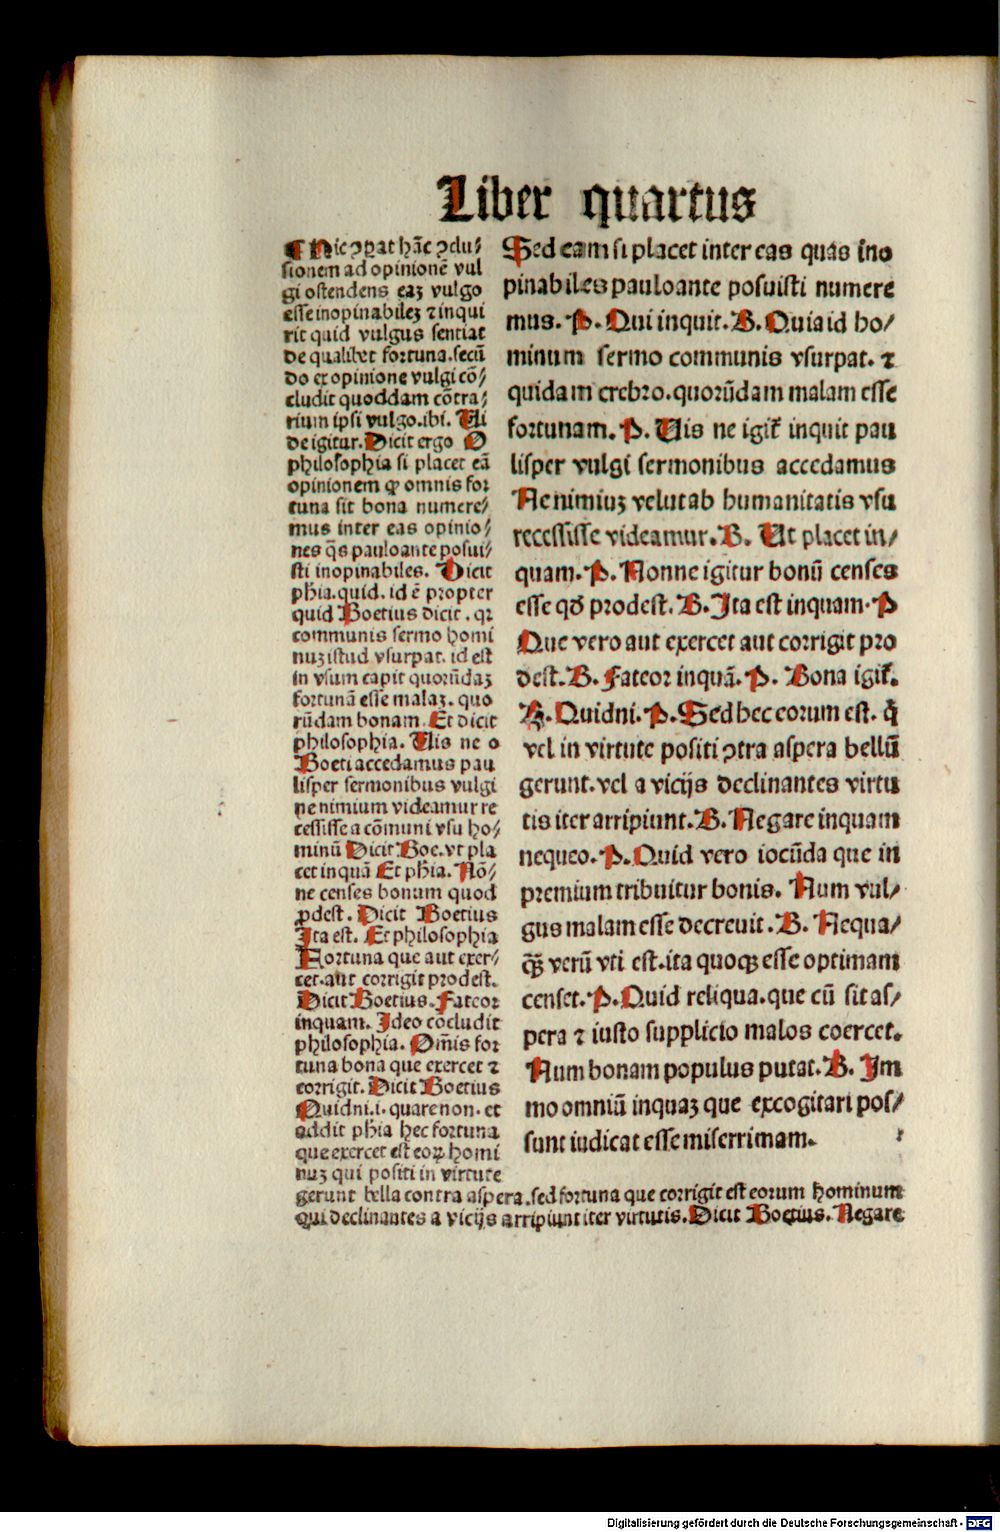 Liber quartus
¶ Hic ꝯꝑat hāc ꝯclu⸗
sionem ad opinionē vul
gi ostendens eaꝫ vulgo
esse inopinabileꝫ ⁊ inqui
rit quid vulgus sentiat
de qualibet fortuna. secū
do ex opinione vulgi cō⸗
cludit quoddam cōtra⸗
rium ipsi vulgo. ibi. Ui
de igitur. Dicit ergo O
philosophia si placet eā
opinionem ꝙ omnis for
tuna sit bona numere⸗
mus inter eas opinio⸗
nes q̄s pauloante posui⸗
sti inopinabiles. Dicit
phīa. quid. id ē propter
quid Boetius dicit. qꝛ
communis sermo homi
nuꝫ istud vsurpat. id est
in vsum capit quorūdaꝫ
fortunā esse malaꝫ. quo
rūdam bonam Et dicit
philosophia. Uis ne o
Boeti accedamus pau
lisper sermonibus vulgi
ne nimium videamur re
cessisse a cōmuni vsu ho⸗
minū Dicit Boe. vt pla
cet inquā Et phīa. Nō⸗
ne censes bonum quod
ꝓdest. Dicit Boetius
Ita est. Et philosophia
Fortuna que aut exer⸗
cet. aut corrigit prodest.
Dicit Boetius. Fateor
inquam. Ideo cōcludit
philosophia. Om̄is for
tuna bona que exercet ⁊
corrigit. Dicit Boetius
Quidni. i. quare non. et
addit phīa hec fortuna
que exercet est eoꝝ homi
nuꝫ qui positi in virtute
gerunt bella contra aspera. sed fortuna que corrigit est eorum hominum
qui declinantes a vicijs arripiunt iter virtutis. Dicit Boetius. Negare
Sed eam si placet inter eas quas ino
pinabiles pauloante posuisti numere
mus. P. Qui inquit. B. Quia id ho⸗
minum sermo communis vsurpat. ⁊
quidam crebro. quorūdam malam esse
fortunam. P. Uis ne igit᷑ inquit pau
lisper vulgi sermonibus accedamus
Ne nimiuꝫ velut ab humanitatis vsu
recessisse videamur. B. Ut placet in⸗
quam. P. Nonne igitur bonū censes
esse qđ prodest. B. Ita est inquam. P
Que vero aut exercet aut corrigit pro
dest. B. Fateor inquā. P. Bona igit᷑.
B. Quidni. P. Sed hec eorum est. q̄
vel in virtute positi ꝯtra aspera bellū
gerunt. vel a vicijs declinantes virtu
tis iter arripiunt. B. Negare inquam
nequeo. P. Quid vero iocūda que in
premium tribuitur bonis. Num vul⸗
gus malam esse decreuit. B. Nequa⸗
ꝙ̄ verū vti est. ita quoqꝫ esse optimam
censet. P. Quid reliqua. que cū sit as⸗
pera ⁊ iusto supplicio malos coercet.
Num bonam populus putat. B. Im
mo omniū inquaꝫ que excogitari pos⸗
sunt iudicat esse miserrimam.
Digitalisierung gefördert durch die Deutsche Forschungsgemeinschaft - DFG